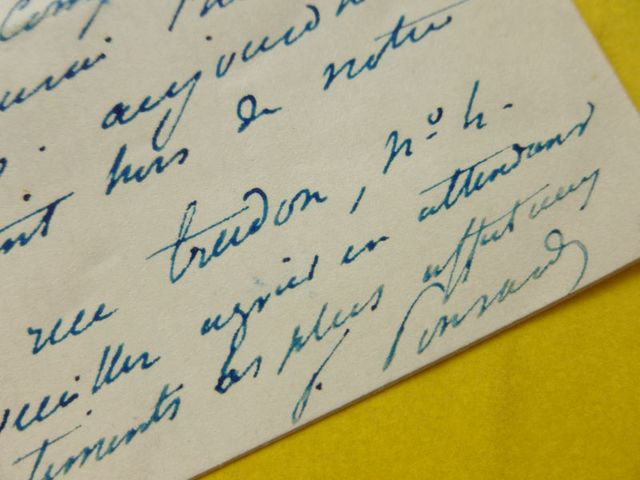 aujourd'h
nt hors de notre
rue trudon, n° 4.
veuillez agréer en attendant
timents les plus affectueux
f. Ponsard